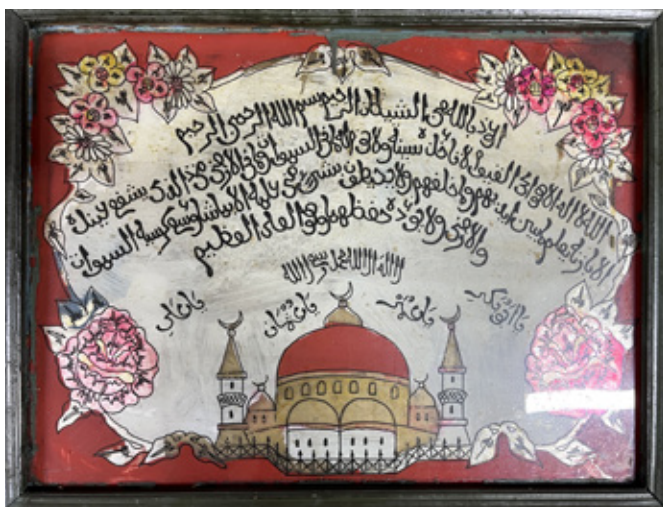 بالله من الشيطان الرجيم بسم الله الرحمن الرحيم
الله لا اله الا هو الحي القيوم لا تاخذه سنة ولا نوم له ما في السموات وما في الارض من ذا الذي يشفع
الا باذنه يعلم ما بين ايديهم وما خلفهم ولا يحيطون بشئ من علمه الا بما شا وسع كرسيه السموات
والارض ولا يؤده حفظهما وهو العلي العظيم
لا اله الا الله محمد رسول الله